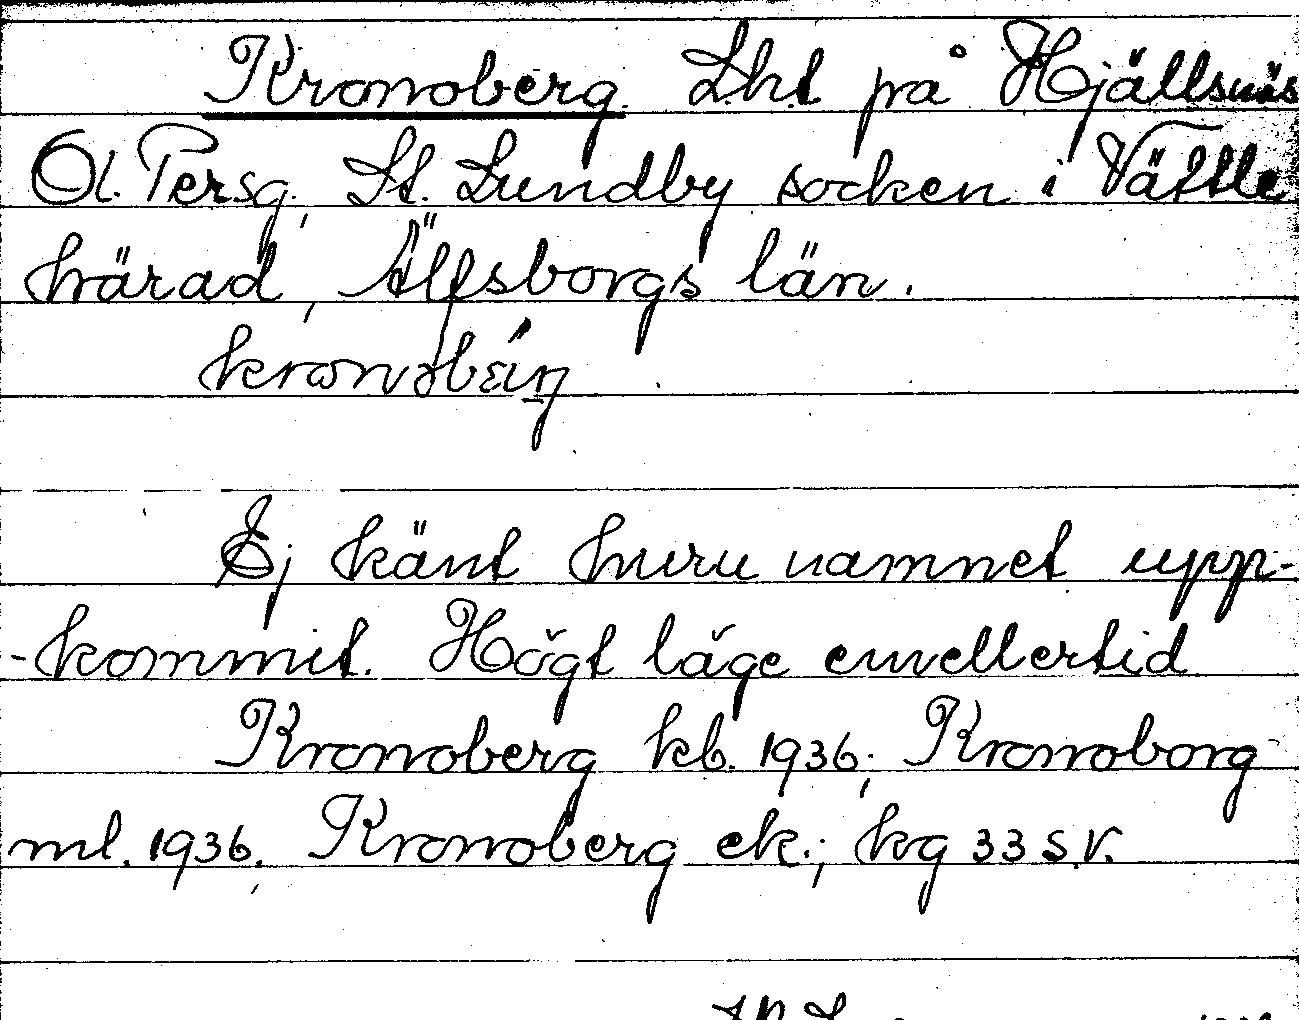 Kronoberg. Lht på Hjällsnäs
Ol. Persg., St. Lundby socken i Vättle
härad, Älfsborgs län.
Ej känt huru namnet upp-
-kommit. Högt läge emellertid
Kronoberg kb. 1936; Kronoborg
ml. 1936, Kronoberg ek.; kg 33 s.v.